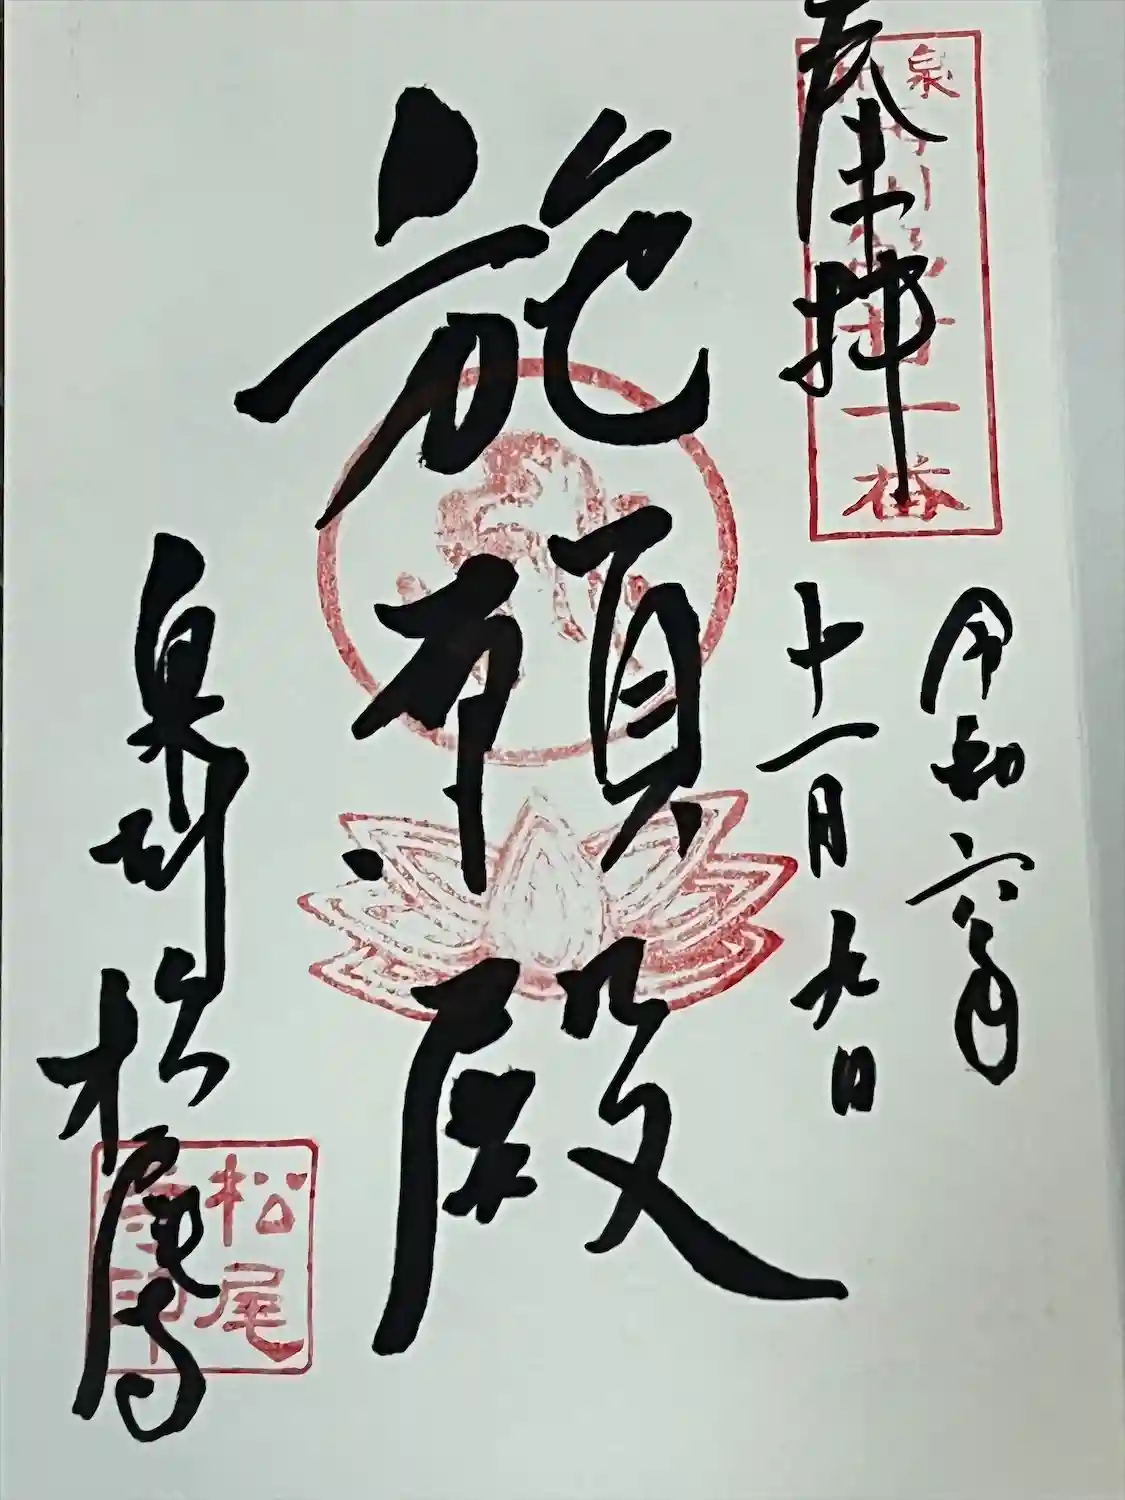 奉拝
令和六年
十一月九日
施願殿
泉州 松尾寺
泉
一番
松尾
寺印